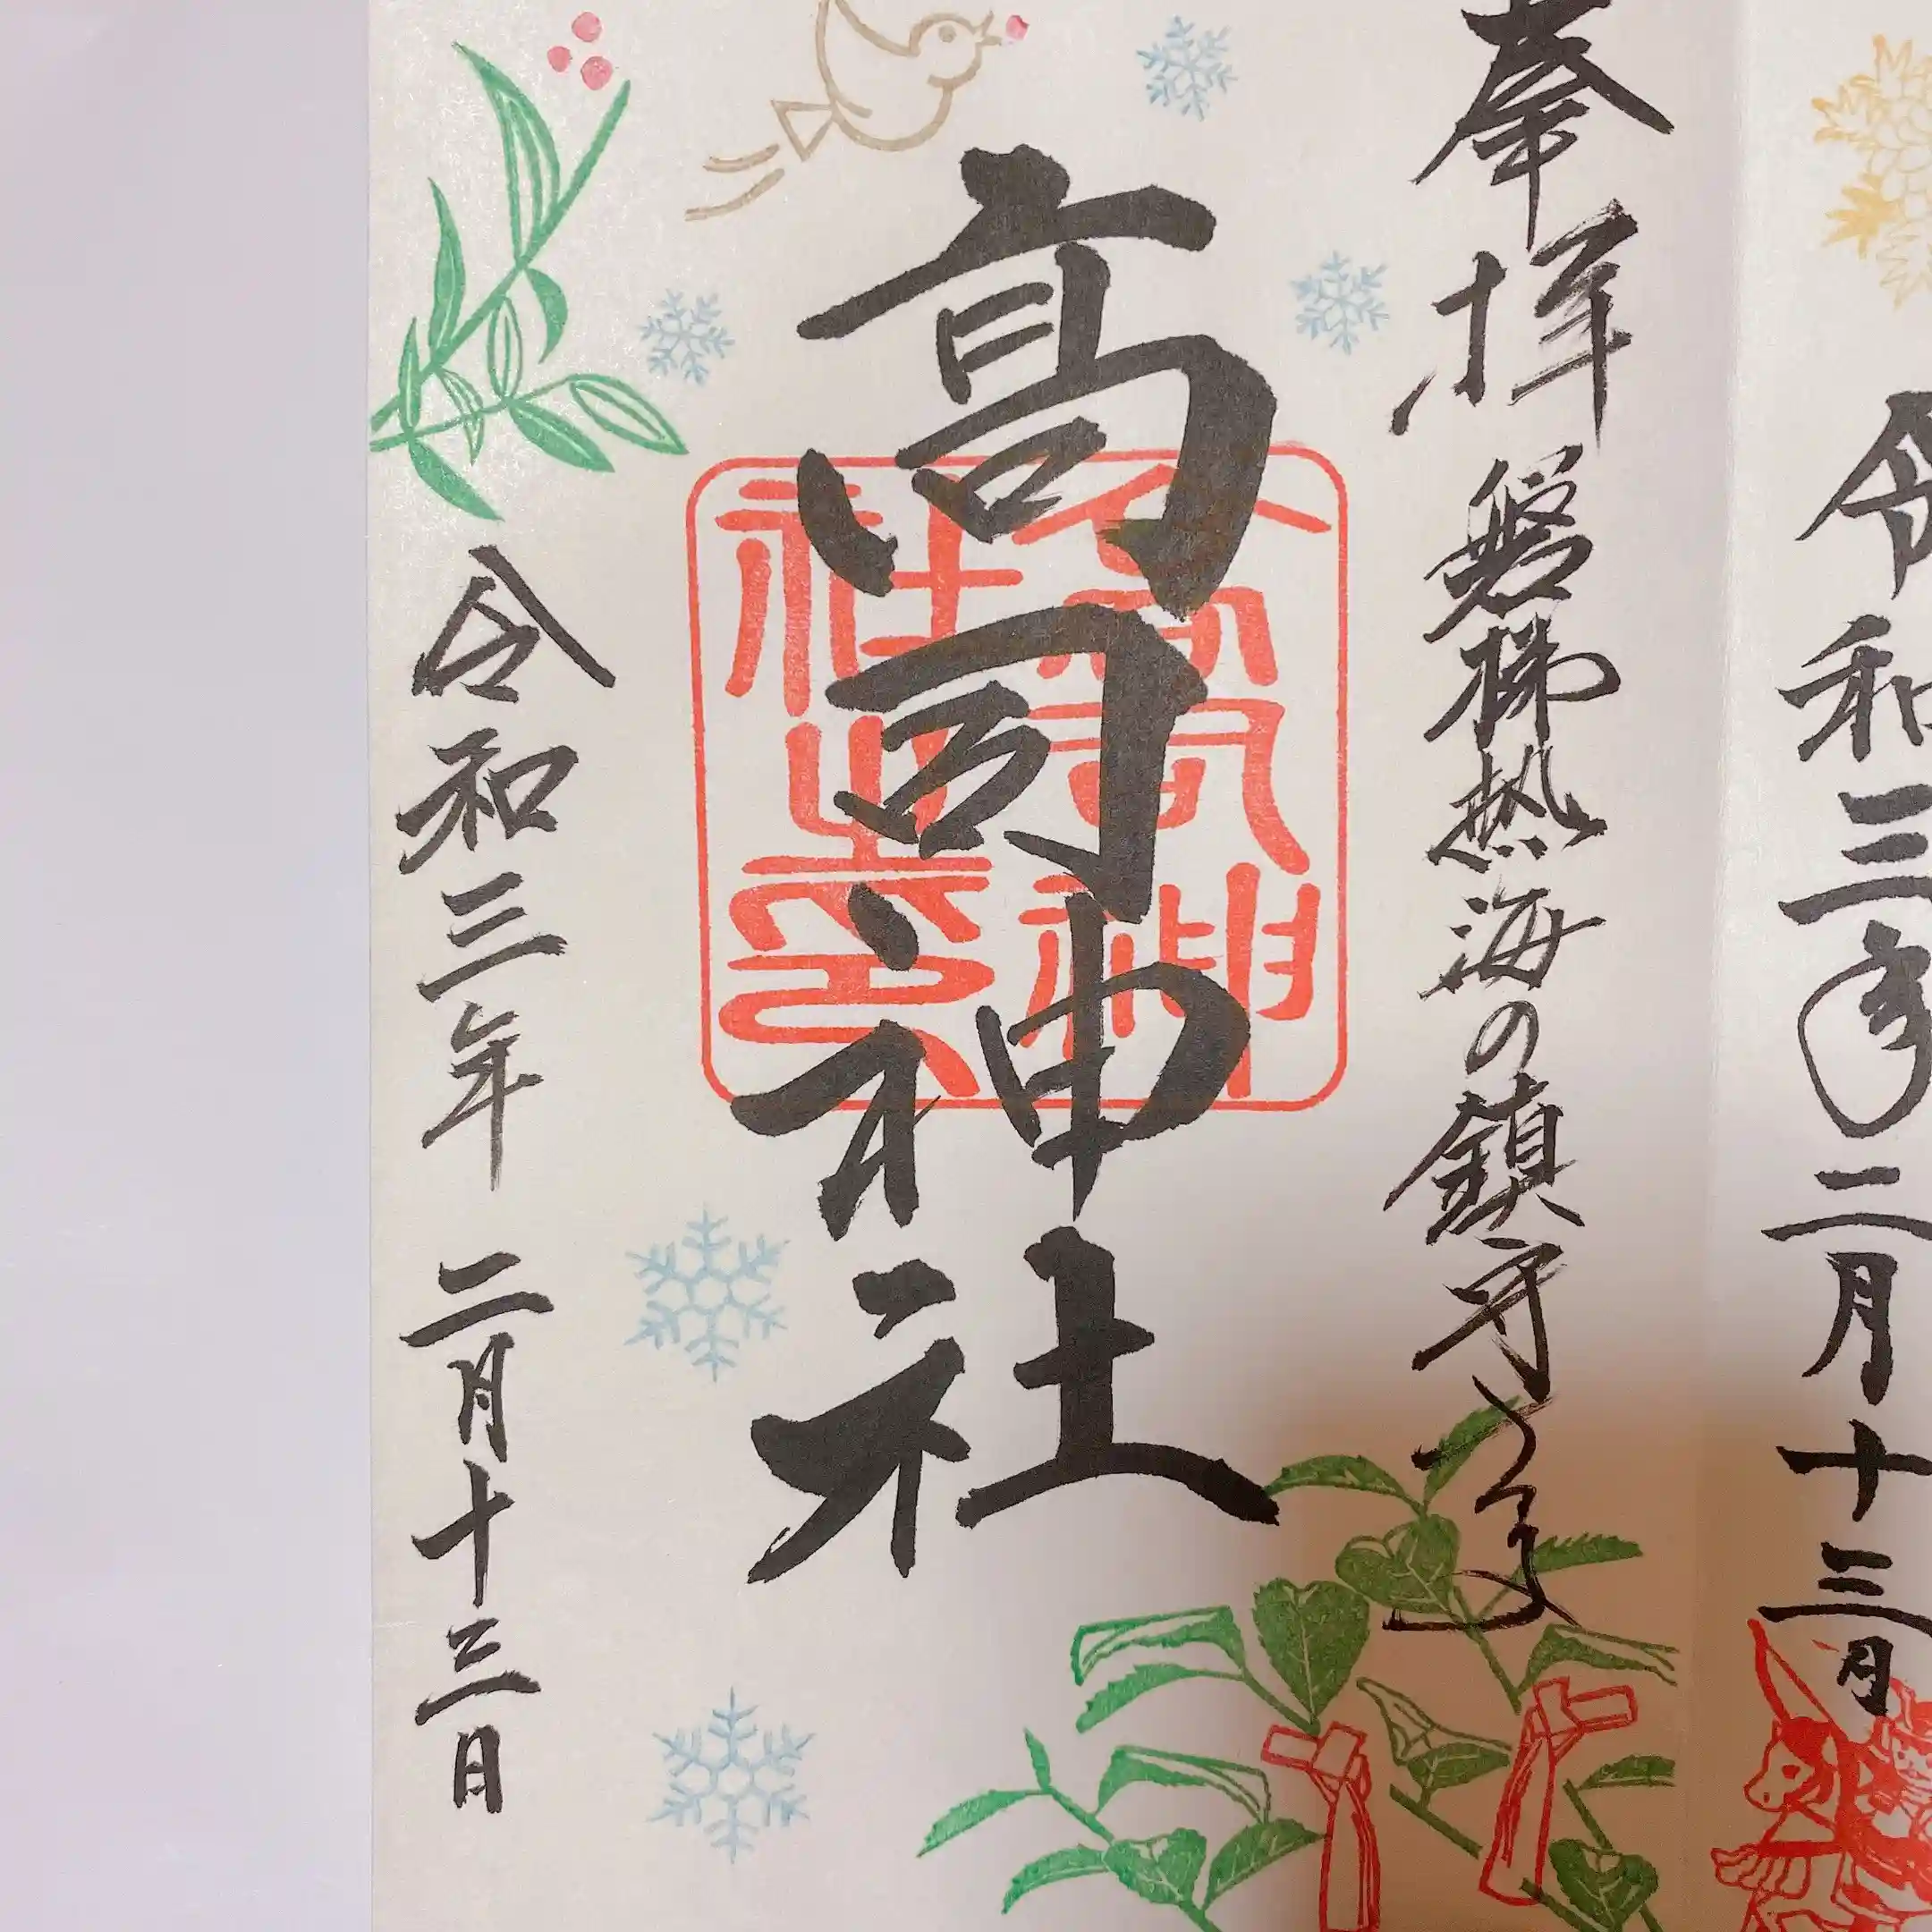 令和三年二月十三日
奉拝 磐梯熱海の鎮守さま
高司神社
高司神
社之印
令和三年 二月十三日